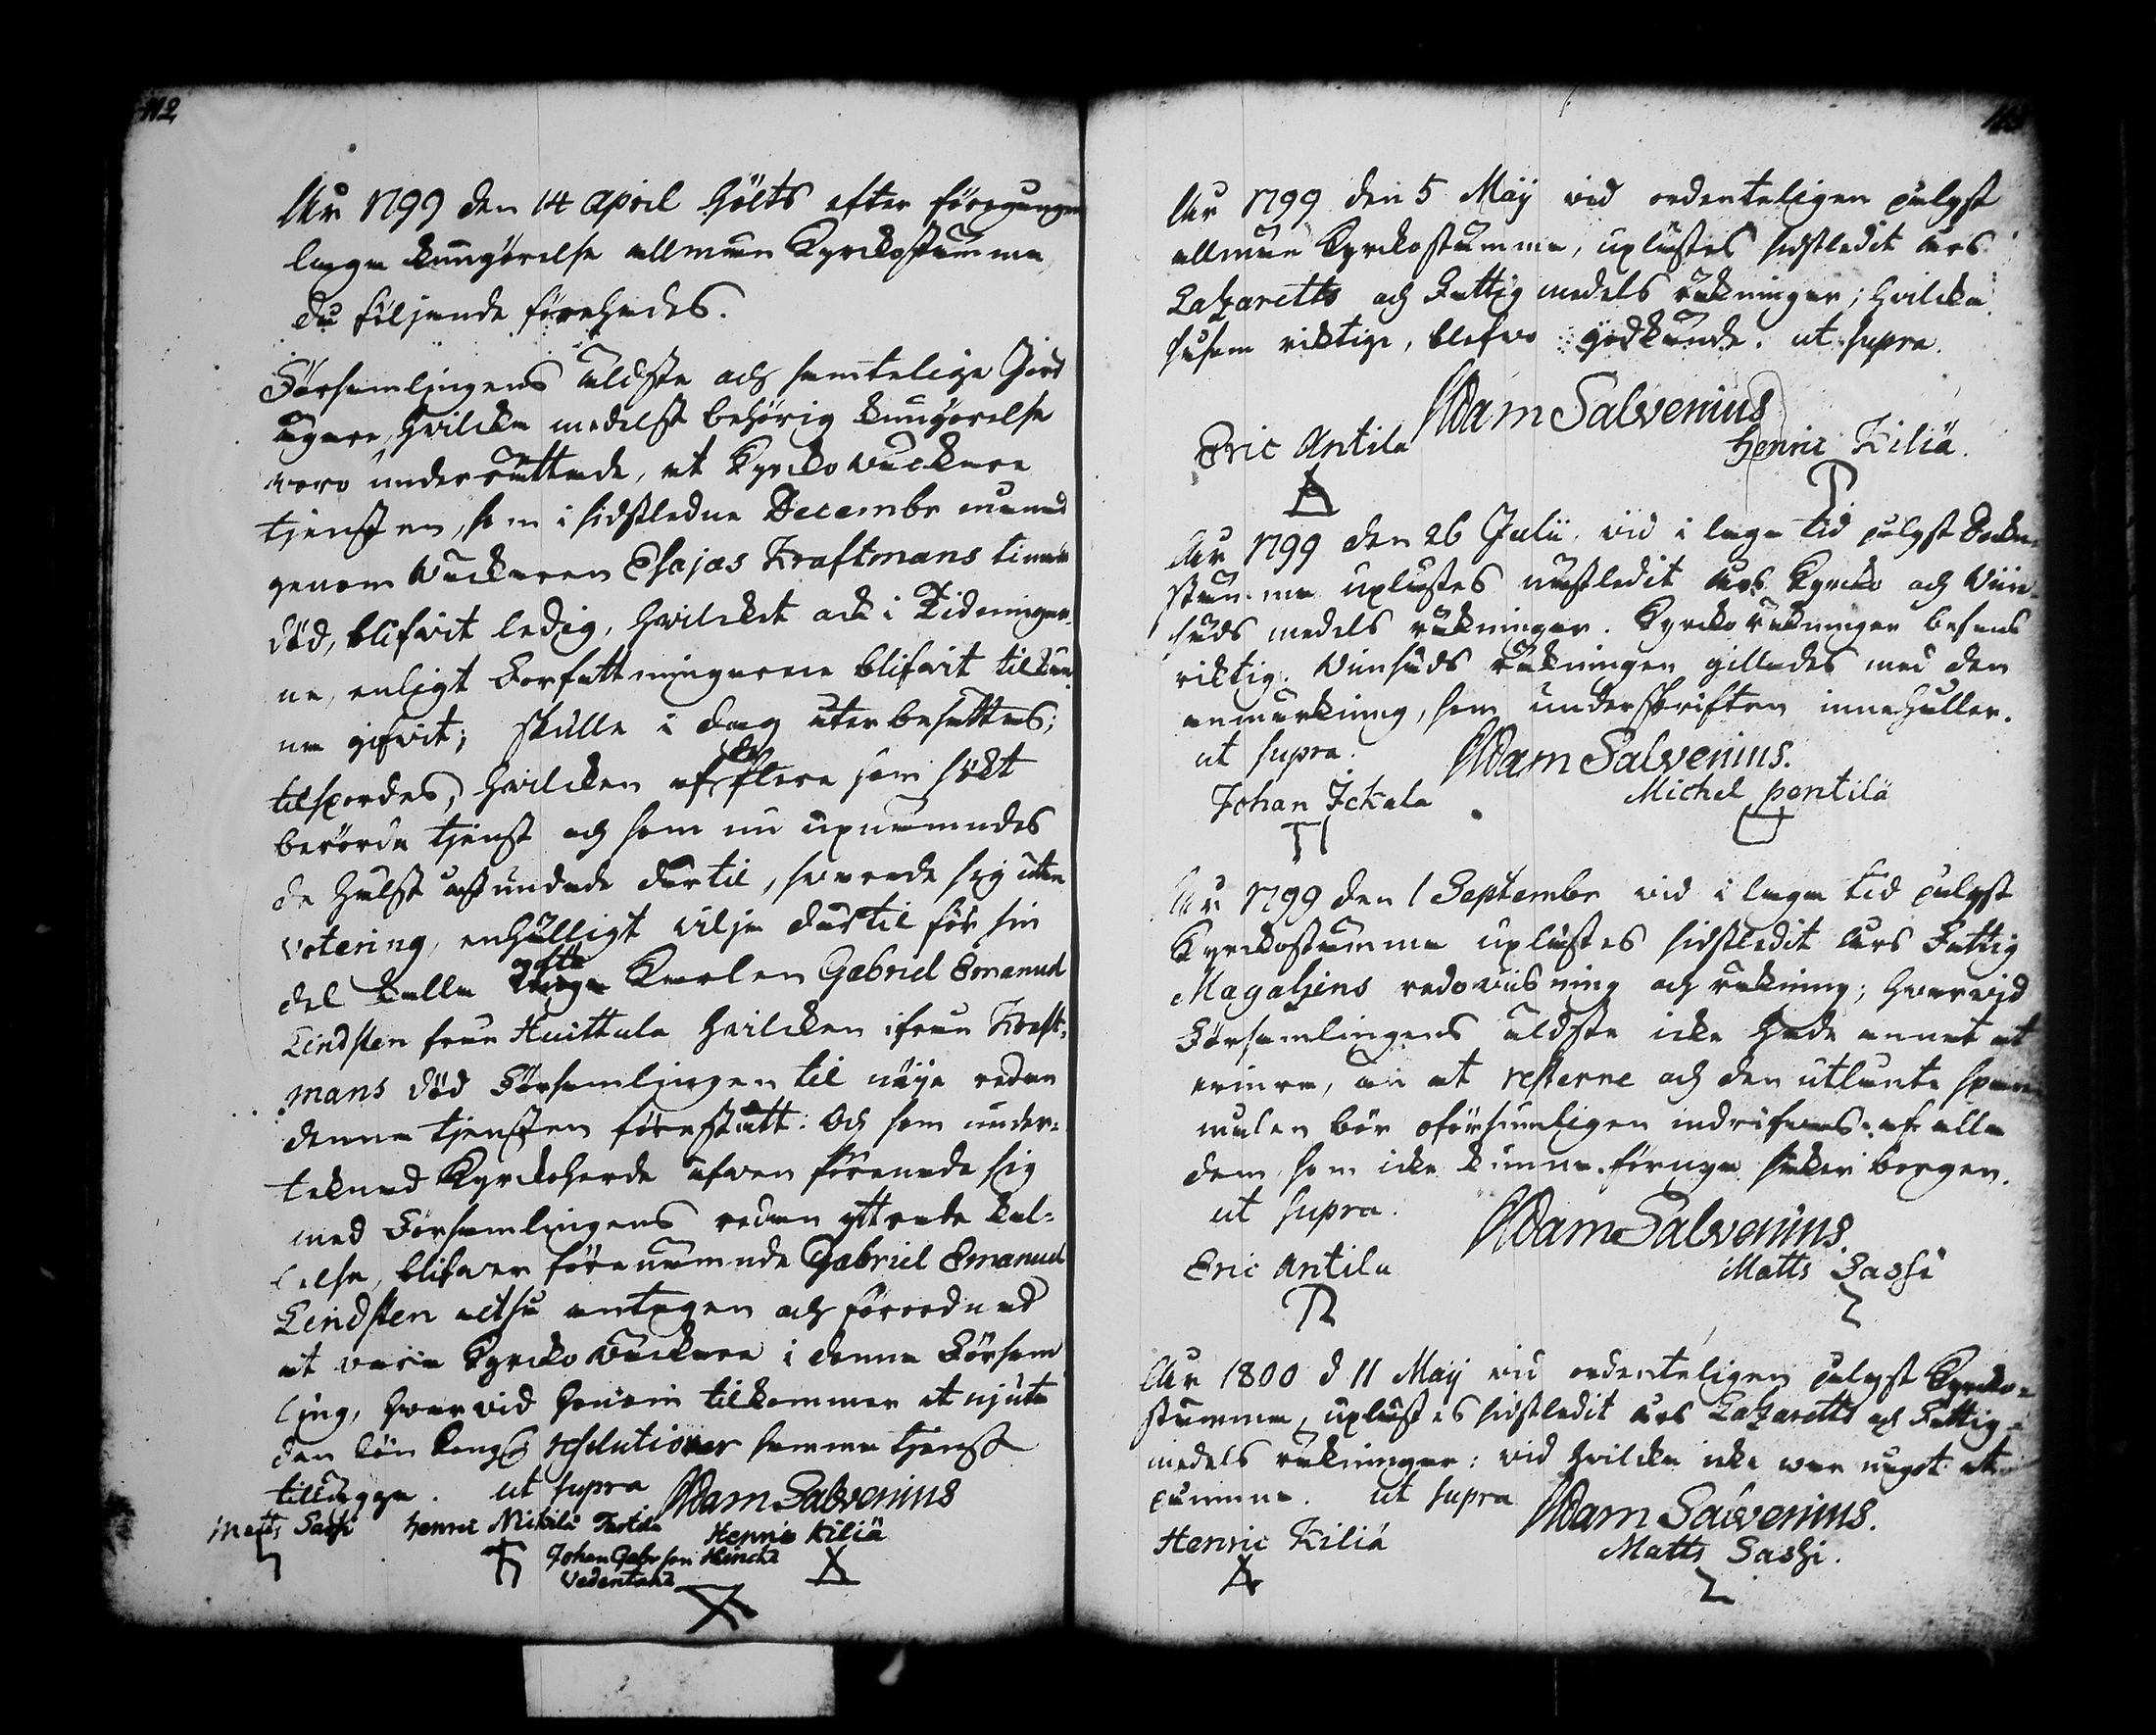 112
År 1799 den 14 April hölts efter föregången
laga kungörelse allmän Kyrkostämma
då följande förehades.
Församlingens äldste och samtelige Jord
ägare, hvilka medelst behörig kungörelse
woro underrättade, at Kyrko wäckare
tjensten, som i sidstledne Decembr månad
genom Wäckaren Esajas Kraftmans timade
död, blifwit ledig, hvilcket ock i Tidningar
ne, enligt Författningarne blifwit tilkän
na gifwit; skulle i dag åter besättas;
tilspordes, hvilcken af de flere som sökt
berörde tjenst och som nu upnämndes
de hälst åstundade dertil, swarade sig utan
votering, enhälligt vilja dertil för sin
del kalla gifte Karlen Gabriel Emanuel
Lindsten från Huittula hvilcken ifrån Kraft-
mans död Församlingen til nöije redan
denne tjensten förestått. Och som under-
teknad Kyrkoherde äfwen förenade sig
med Församlingens redan yttrade kal-
lelse, blifwer förenämnde Gabriel Emanuel
Lindsten altså antagen och förordnad
at vara Kyrko Wäckare i denne Försam
ling, hwarvid honom tilkommer at njuta
den lön Kongl resolutioner samma tjenst
tillägga. ut supra Adam Salvenius
Matts Sassi Henric Mikilä Henric Kiliä
Johan Gabr son
Wedentaka
År 1799 den 5 Maij vid ordenteligen pålyst
allmän Kyrkostämma, uplästes sidstledit års
Lazaretts och Fattig medels räkningar; hvilka
såsom riktige, blefwo godkände. ut supra.
Adam Salvenius
Eric Antila Henric Kiliä.
År 1799 den 26 Julii, vid i laga tid pålyst Sockne
stämma uplästes nästledit års Kyrko och Wiin
säds medels räkningar. Kyrko räkningen befans
riktig. Winsäds räkningen gillades med den
anmärkning, som underskriften innehåller.
ut supra. Adam Salvenius.
Johan Ickala Michel pentilä
År 1799 den 1 Septembr vid i laga tid pålyst
Kyrkostämma uplästes sidstledit års Fattig
Magazins redovisning och räkning; hwarvid
Församlingens äldste icke hade annat at
erinra, än at resterne och den utlånte spanne
målen bör oförsumligen indrifwas af alla
dem, som icke kunna förnya säker borgen.
ut supra. Adam Salvenius
Eric Antila Matts Sassi
År 1800 d 11 Maij vid ordenteligen pålyst Kyrko-
stämma, uplästes sidstledit års Lazaretts och Fattig-
medels räkningar: vid hvilka icke war något at
påminna. ut supra Adam Salvenius.
Henric Kiliä Matts Sassi.